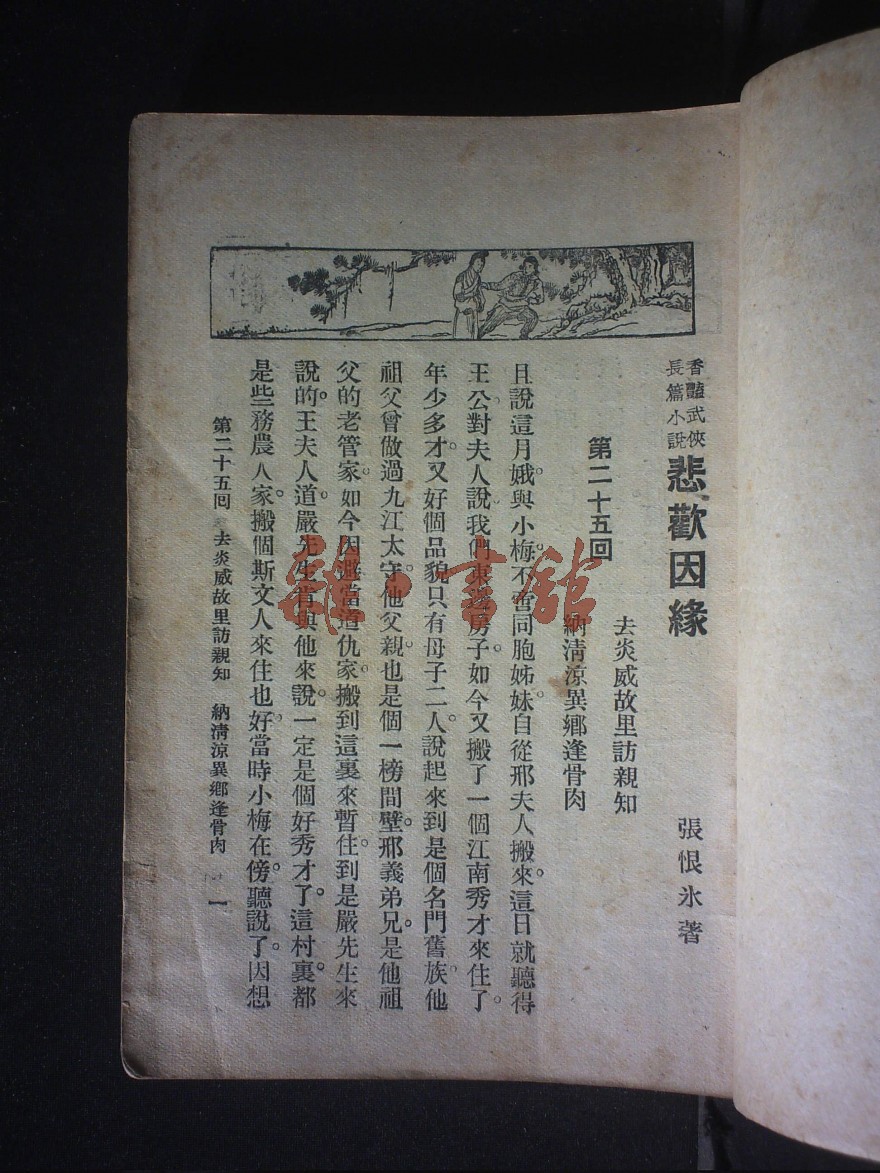 香豔武俠
長篇小說
悲歡因緣
張恨水著
第二十五回
去炎威故里訪親知
納清涼異鄉逢骨肉
且說這月娥與小梅不啻同胞姊妹。自從邢夫人搬來。這日就聽得
王公對夫人說我們東邊房子。如今又搬了一個江南秀才來住了。
年少多才。又好個品貌只有母子二人。說起來到是個名門舊族。他
祖父曾做過九江太守。他父親也是個一榜間壁。邢義弟兄。是他祖
父的老管家。如今因避當道仇家。搬到這裏來暫住。到是嚴先生來
說的。王夫人道。嚴先生肯與他來說。一定是個好秀才了。這村裏都
是些務農人家。搬個斯文人來住也好。當時小梅在傍。聽說了。因想
第二十五回 去炎威故里訪親知 納清涼異鄉逢骨肉 一
雜·書館